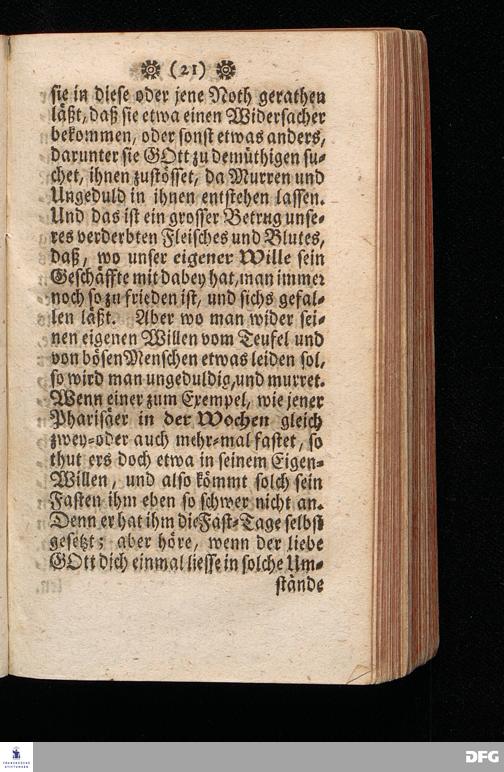 (21)
sie in diese oder jene Noth gerathen
läßt, daß sie etwa einen Widersacher
bekommen, oder sonst etwas anders,
darunter sie GOtt zu demüthigen su-
chet, ihnen zustösset, da Murren und
Ungeduld in ihnen entstehen lassen.
Und das ist ein grosser Betrug unse-
res verderbten Fleisches und Blutes,
daß, wo unser eigener Wille sein
Geschäffte mit dabey hat, man immer
noch so zu frieden ist, und sichs gefal-
len läßt. Aber wo man wider sei-
nen eigenen Willen vom Teufel und
von bösen Menschen etwas leiden sol,
so wird man ungeduldig, und murret.
Wenn einer zum Exempel, wie jener
Pharisäer in der Wochen gleich
zwey-oder auch mehr-mal fastet, so
thut ers doch etwa in seinem Eigen-
Willen, und also kömmt solch sein
Fasten ihm eben so schwer nicht an.
Denn er hat ihm die Fast-Tage selbst
gesetzt; aber höre, wenn der liebe
GOtt dich einmal liesse in solche Um-
stände
FRANCKESCHE
STIFTUNGEN
DFG